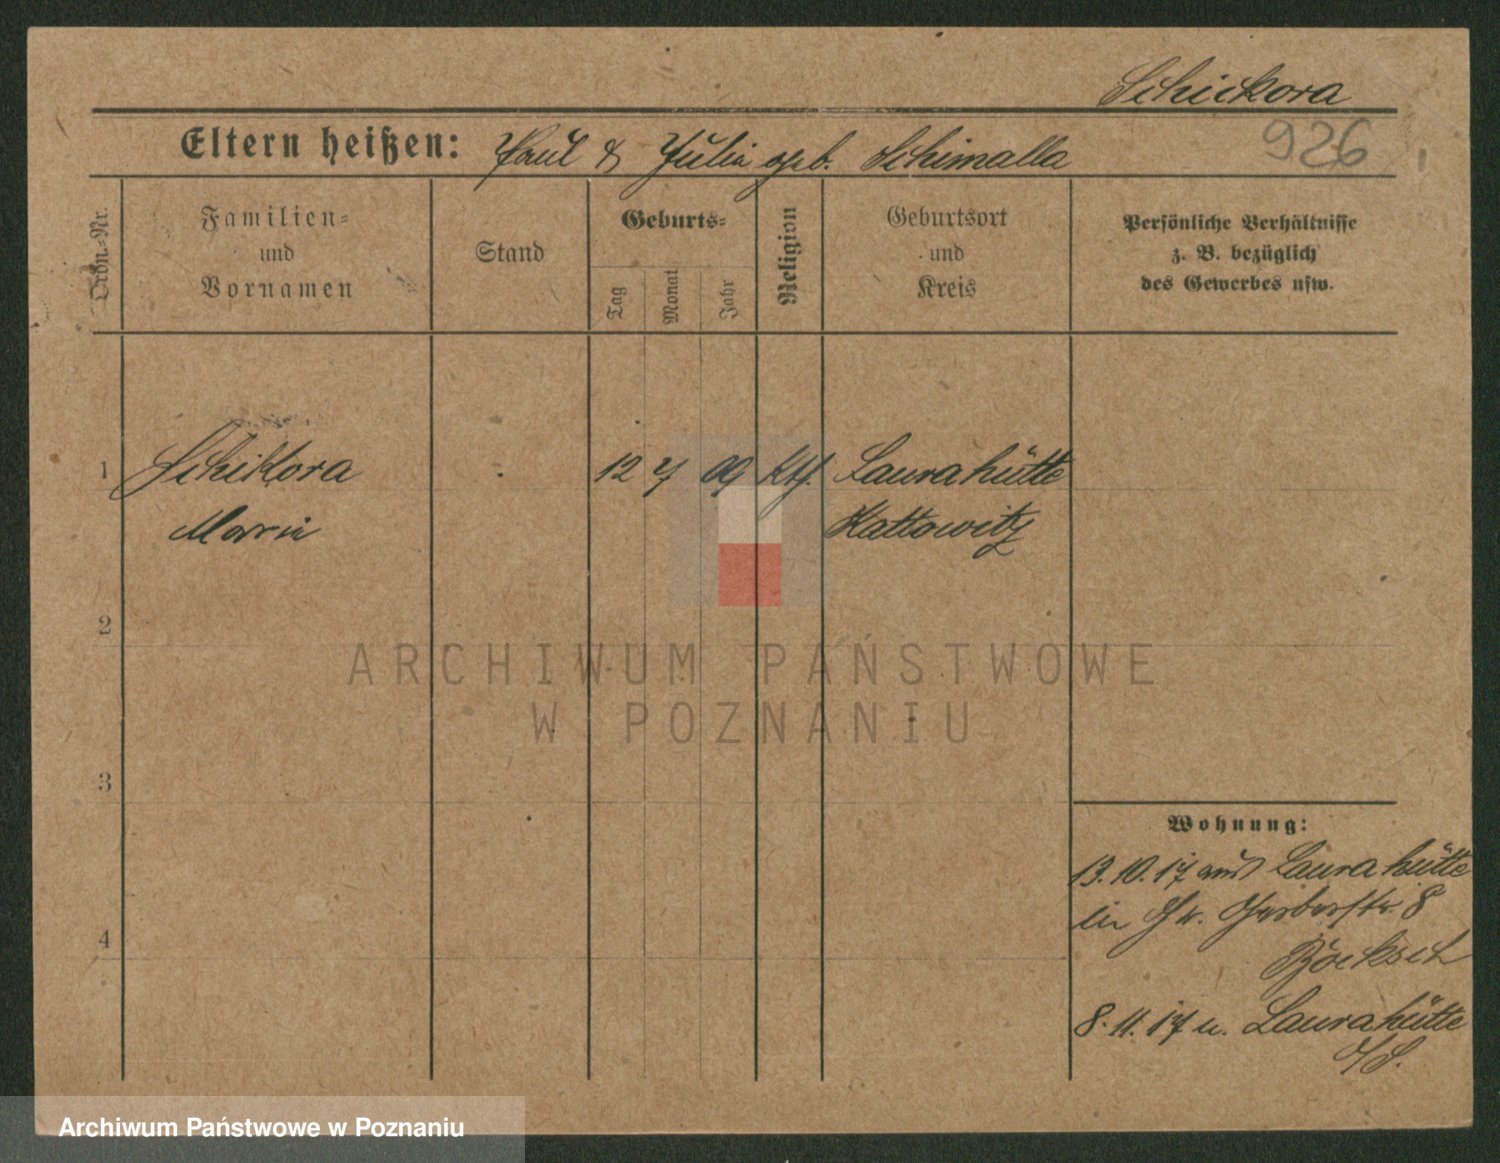 Schickora
926
Eltern heißen: Paul & Julia geb. Schimalla
Ordn.-Nr.
Familien-
und
Vornamen
Stand
Geburts-
Tag
Monat
Jahr
Religion
Geburtsort
und
Kreis
Persönliche Verhältnisse
z. B. bezüglich
des Gewerbes usw.
1 Schiktora 12 7 09 Kth. Laurahütte
Marie Kattowitz
2
3
4
Wohnung:
13.10.17 aus Laurahütte
in Gerberstr. 8
8.11.17 n. Laurahütte
O/S.
ARCHIWUM PAŃSTWOWE
W POZNANIU
Archiwum Państwowe w Poznaniu